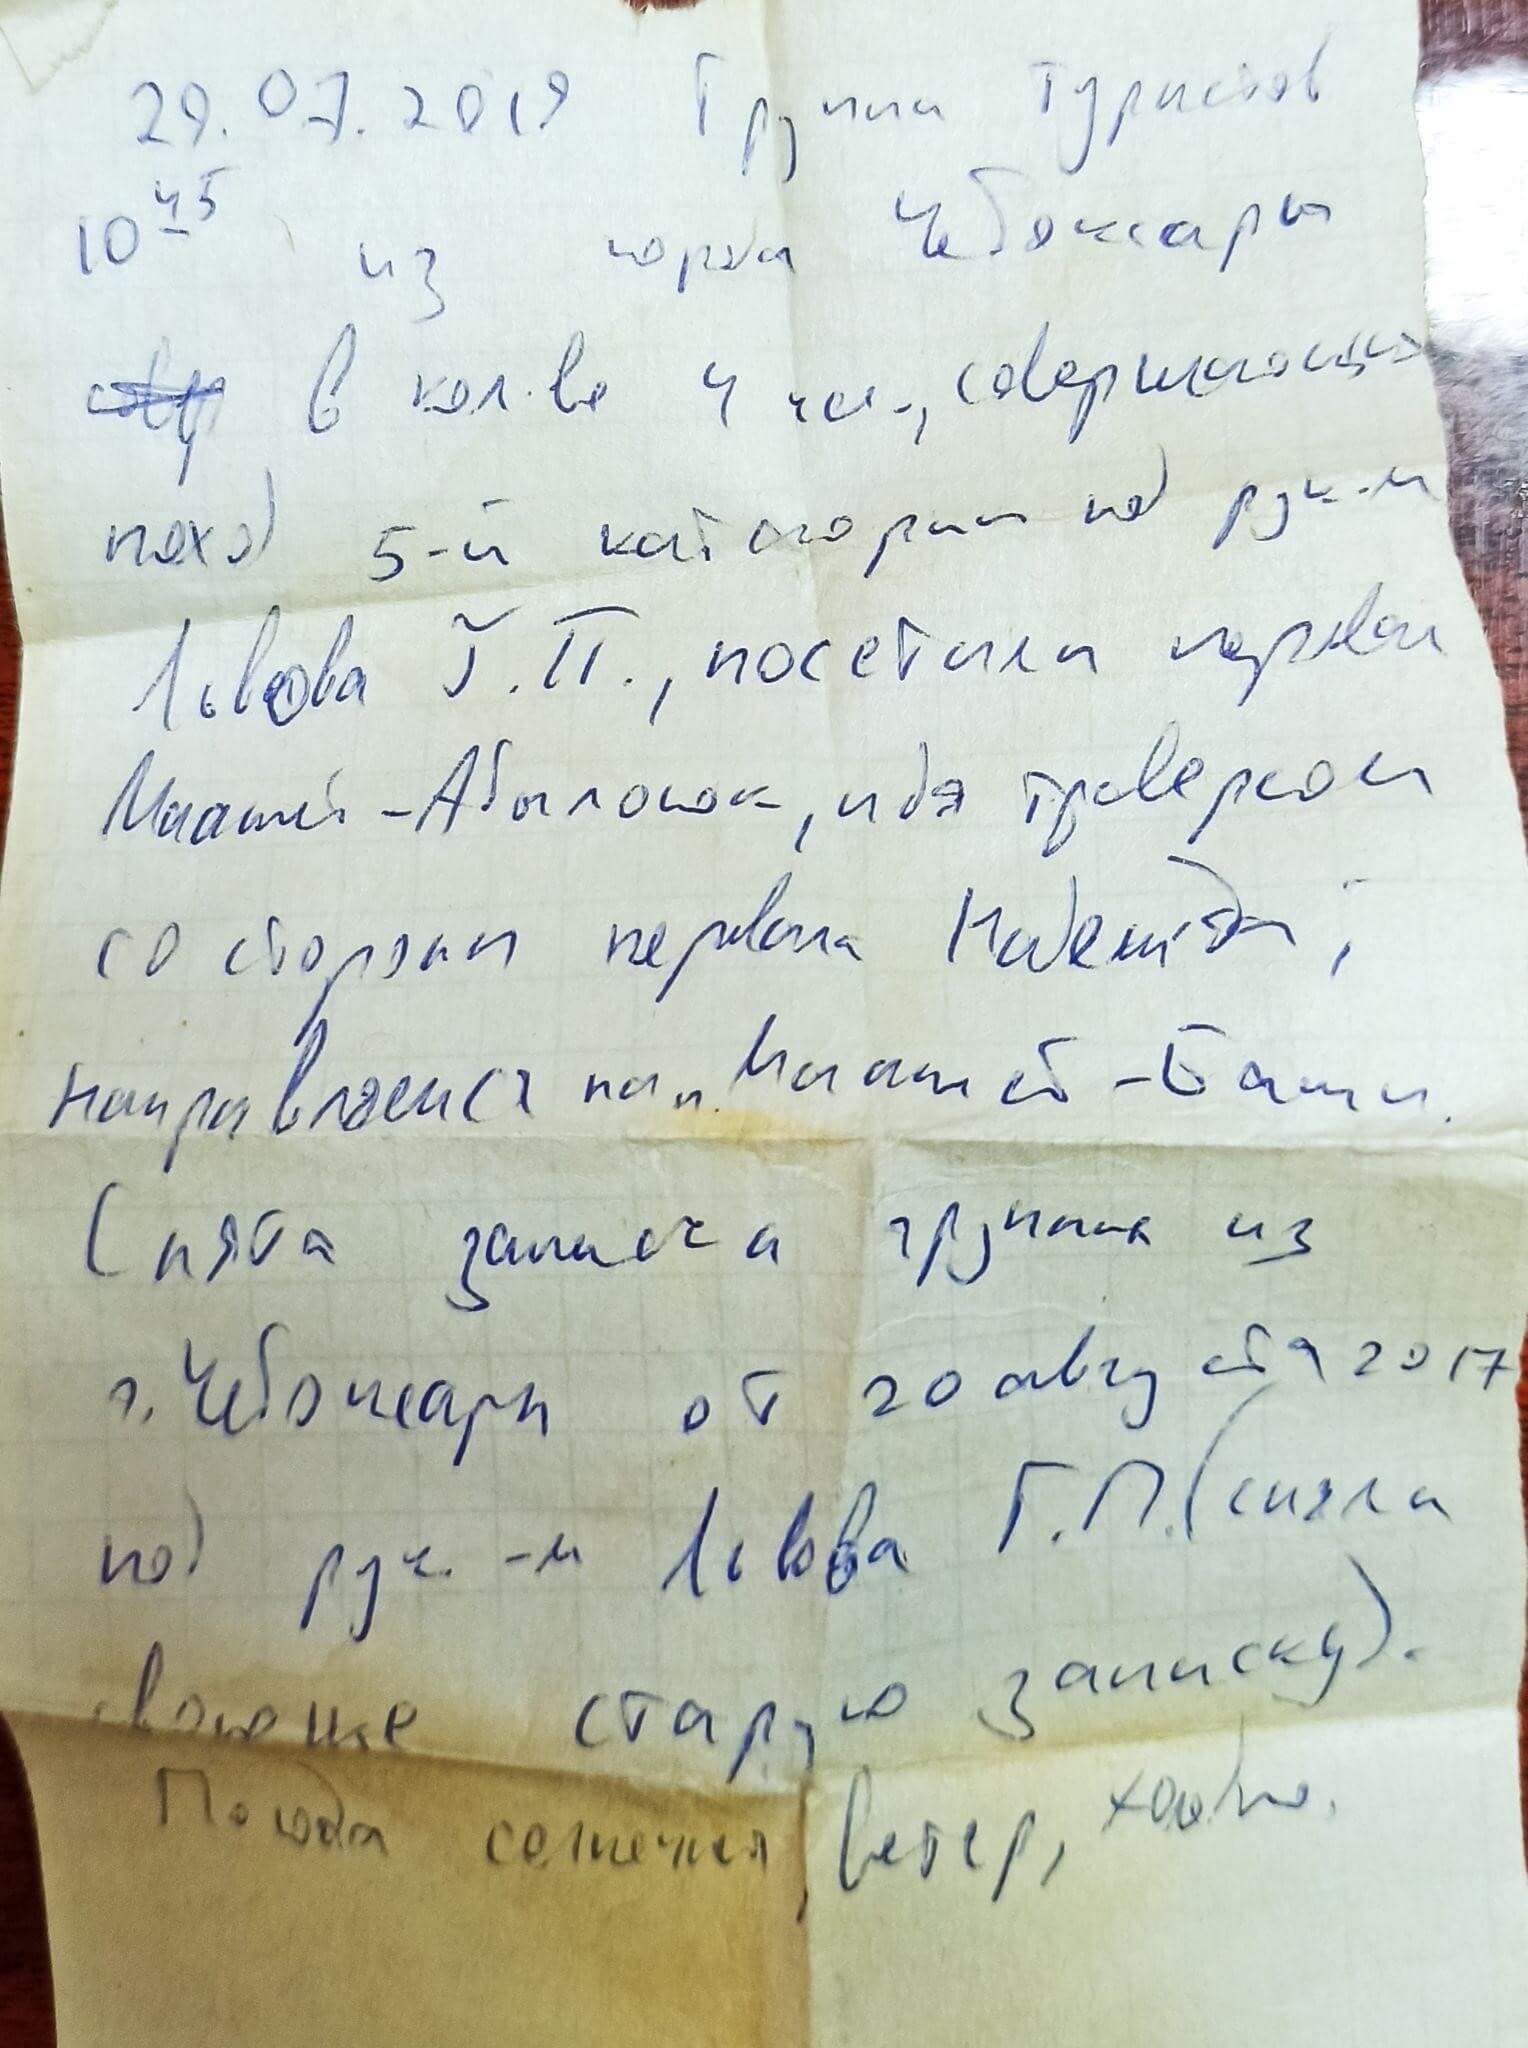 29.07.2019 Группа туристов
10 45 из города Чебоксары
в кол-ве 4 чел., совершающих
поход 5-й категории под рук-м
Львова Г.П., посетили перевал
-Абыл-оюк, идя траверсом
со стороны перевала Надежда,
направляемся на п. -Баши.
Снята записка группы из
г. Чебоксары от 20 августа 2017
под рук.-м Львова Г.П. (сняли
свою же старую записку).
Погода солнечная, ветер, холодно.